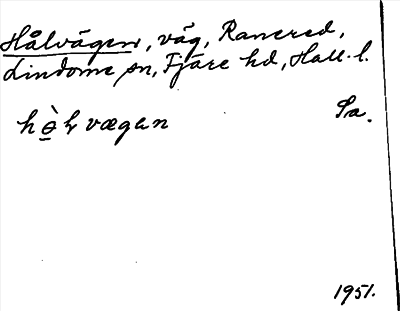 Hålvägen, väg, Ranered,
Lindome sn, Fjäre hd, Hall. l.
hò̱lvægen
Sa.
1951.